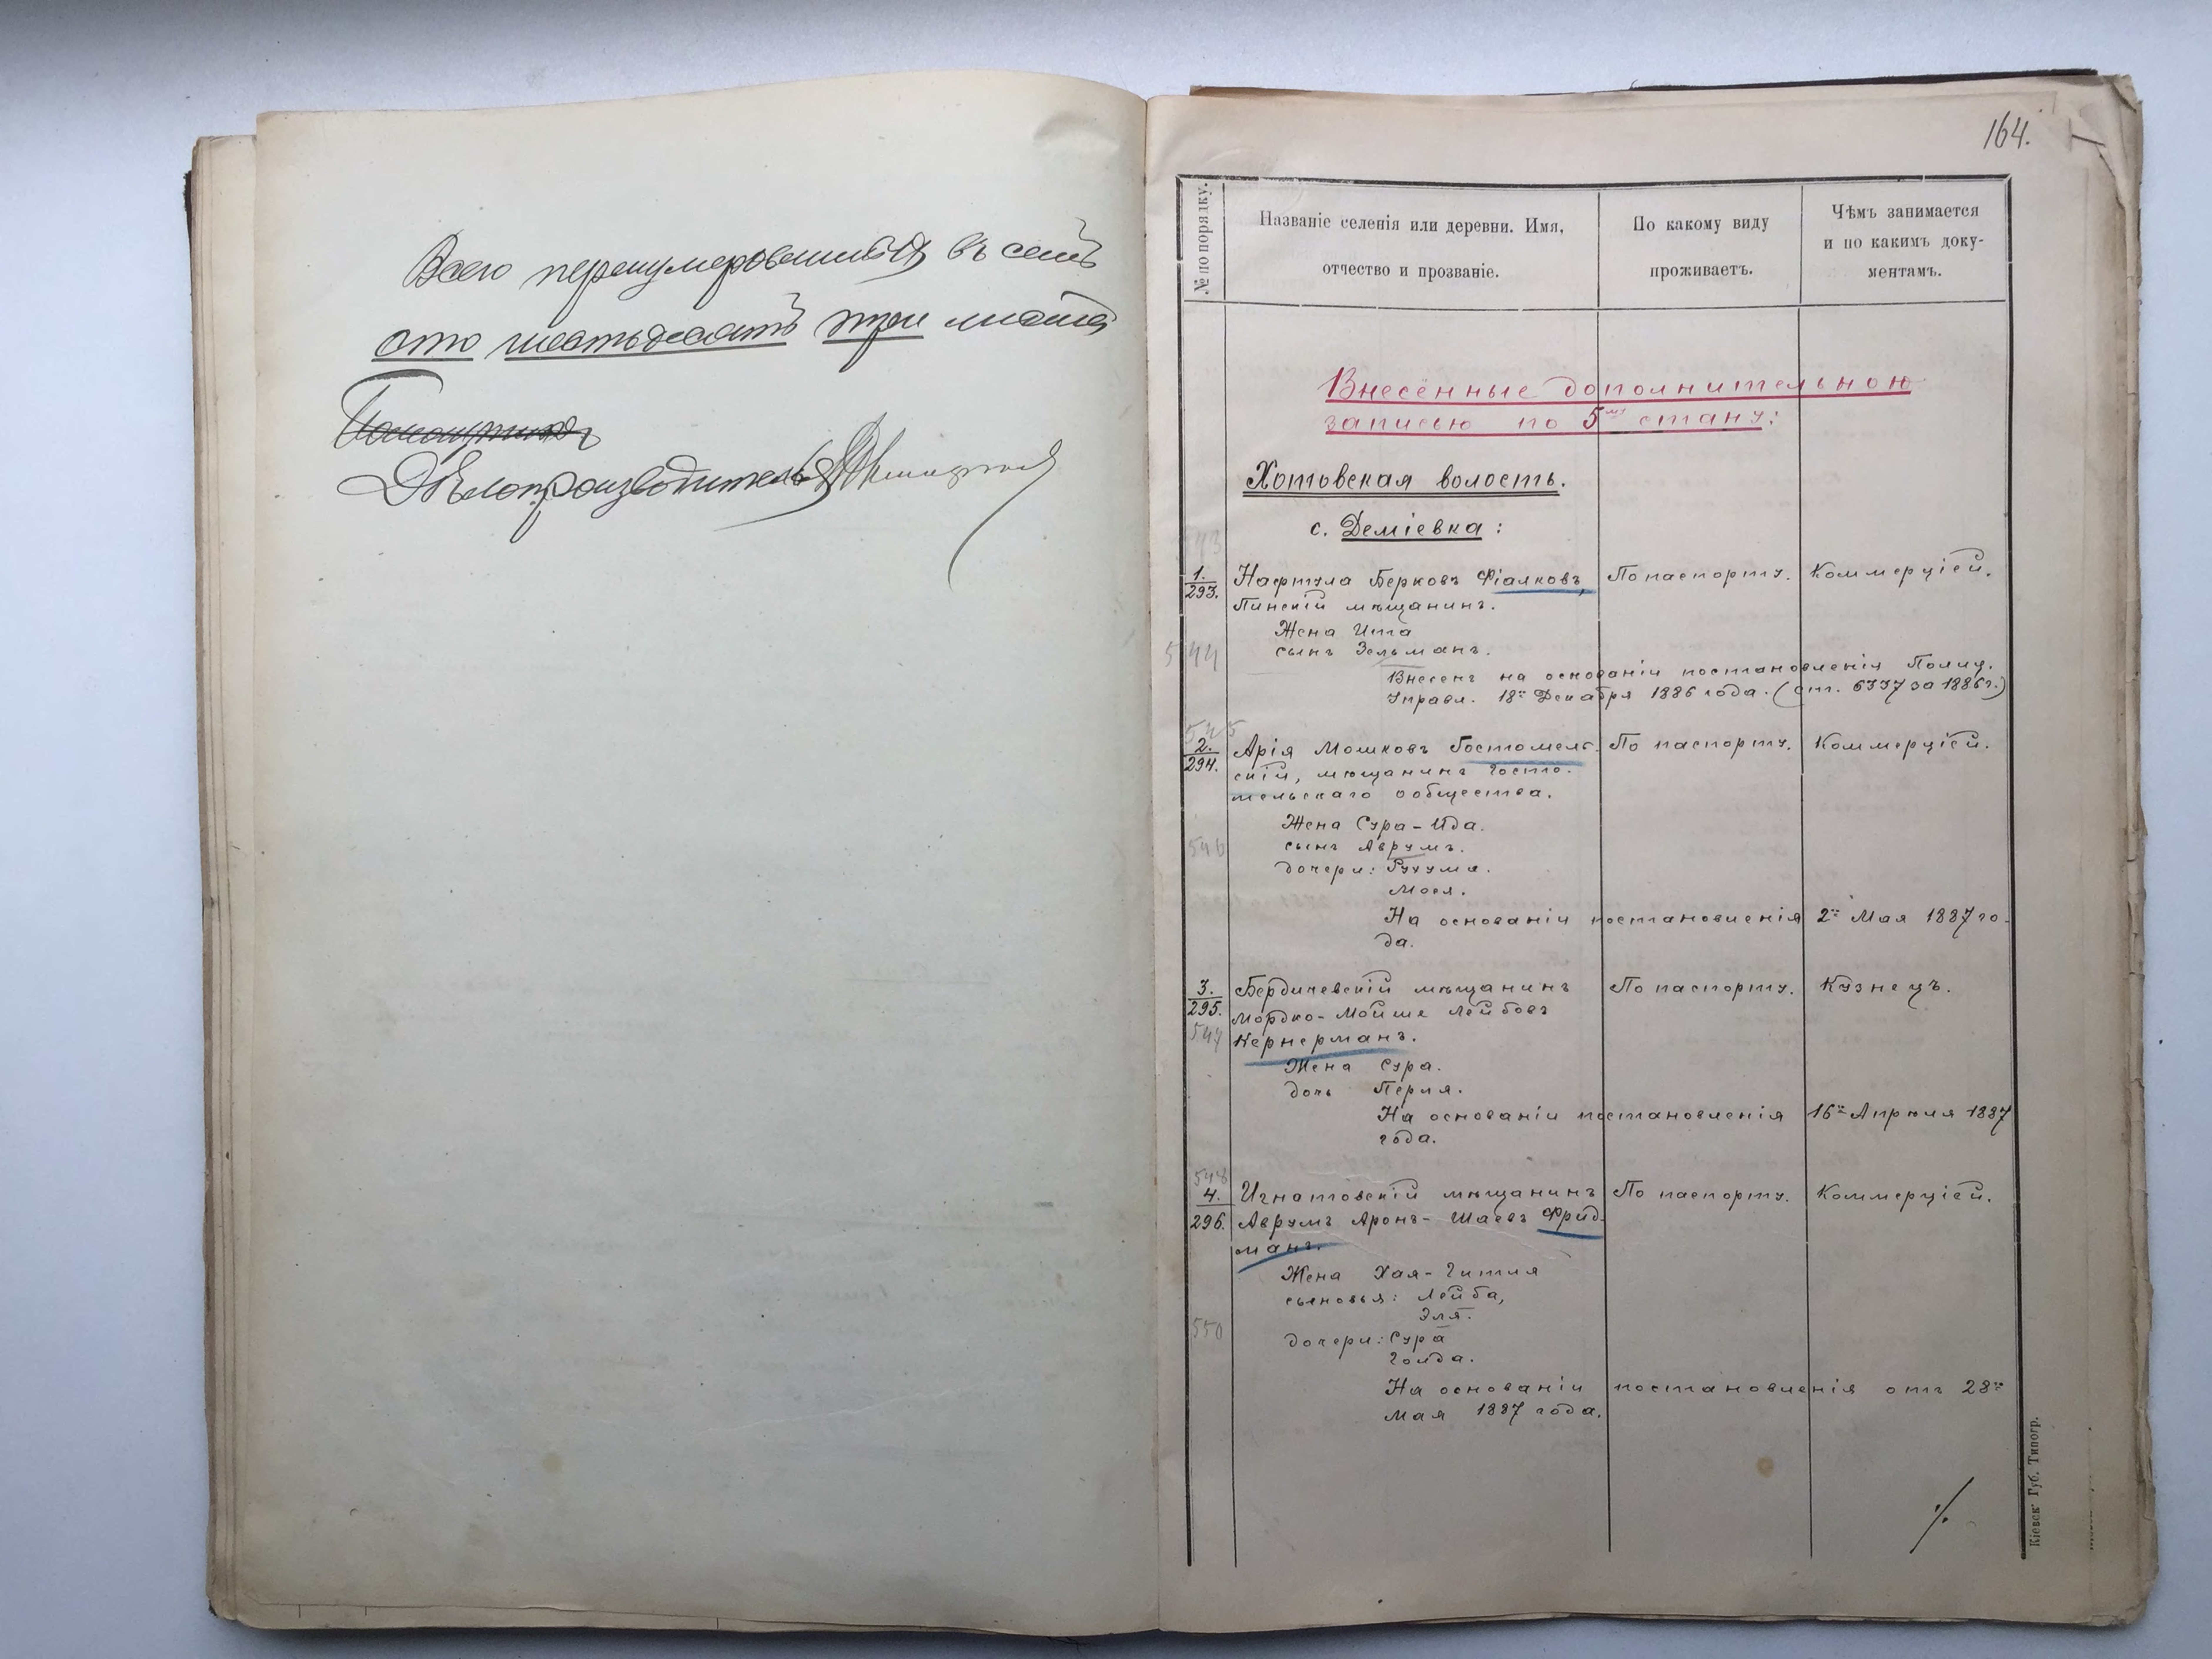 Всего перенумерованныхъ въ семъ
сто шестьдесятъ три листа
Помощникъ
Дѣлопроизводитель
164.
№ по порядку.
Названіе селенія или деревни. Имя,
отчество и прозваніе.
По какому виду
проживаетъ.
Чѣмъ занимается
и по какимъ доку-
ментамъ.
Внесенные дополнительною
записью по 5му стану:
Хотовская волость.
с. Деміевка:
543
1.
293.
Нафтула Берковъ Фіалковъ,
По паспорту.
Коммерціей.
Пинскій мѣщанинъ.
Жена Итта
544
сынъ Зельманъ.
Внесенъ на основаніи постановленія Полиц.
Управл. 18го Декабря 1886 года. (ст. 6337 за 1886г.)
545
2.
294.
Арія Мошковъ Гостомель-
По паспорту.
Коммерціей.
скій, мѣщанинъ Госто-
мельскаго общества.
Жена Сура-Ида.
546
сынъ Аврумъ.
дочери: Рухума.
Мося.
На основаніи постановленія 2го Мая 1887 го-
да.
3.
295.
Бердичевскій мѣщанинъ
По паспорту.
Кузнецъ.
Мордко-Мойше Лейбовъ
547
Кернерманъ.
Жена Сура.
дочь Перля.
На основаніи постановленія 16го Апрѣля 1887
года.
548
4.
296.
Игнатовскій мѣщанинъ
По паспорту.
Коммерціей.
Аврумъ Аронъ-Шаевъ Фрид-
манъ.
Жена Хая-Гитля
сыновья: Лейба,
Эля.
550
дочери: Сура
Голда.
На основаніи постановленія отъ 28го
Мая 1887 года.
./.
Кіевск. Губ. Типогр.